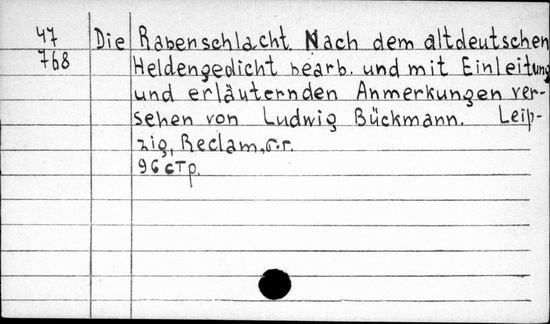 47 Die Rabenschlacht. Nach dem altdeutschen
768 Heldengedicht bearb. und mit Einleitung
und erläuternden Anmerkungen ver-
sehen von Ludwig Bückmann. Leip-
zig, Reclam, б.г.
96 стр.